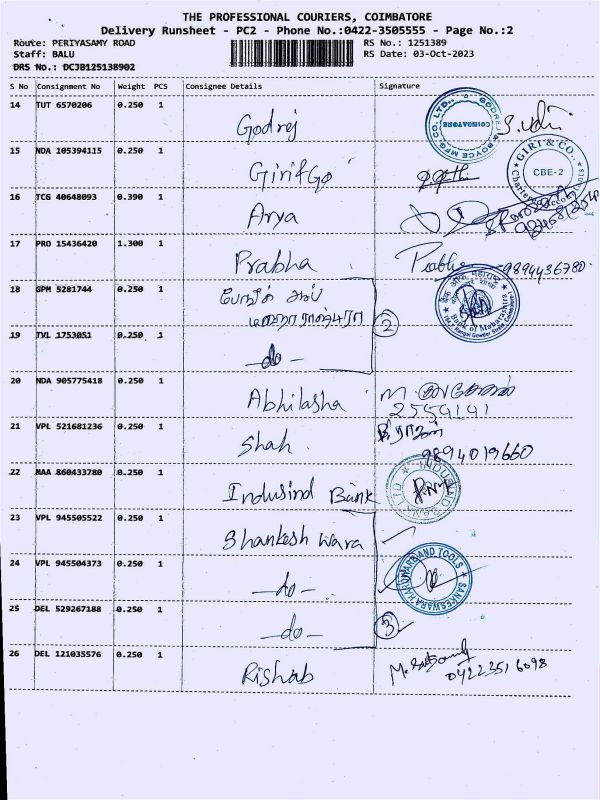 THE PROFESSIONAL COURIERS, COIMBATORE
Delivery Runsheet - PC2 - Phone No.:0422-3505555 - Page No.:2
Route: PERIYASAMY ROAD
RS No.: 1251389
Staff: BALU
RS Date: 03-Oct-2023
DRS No.: DCJB125138902
S No Consignment No Weight PCS Consignee Details Signature
14 TUT 6570206 0.250 1 Godrej
GODREJ & BOYCE MFG.CO.LTD. COIMBATORE
15 NDA 105394115 0.250 1
GIRI & CO., CBE-2
16 TCG 40648093 0.390 1 Arya
17 PRO 15436420 1.300 1 Prabha Prabha 9894436780
18 GPM 5281744 0.250 1
Bank of Maharashtra
2
19 TVL 1753051 0.250 1 -do-
20 NDA 905775418 0.250 1 Abhilasha
2559191
21 VPL 521681236 0.250 1 Shah
9894019660
22 MAA 860433780 0.250 1 Indusind Bank
INDUSIND BANK LTD
23 VPL 945505522 0.250 1 Shankeshwara
24 VPL 945504373 0.250 1 -do-
SANKESWARA HARDWARE AND TOOLS
25 DEL 529267188 0.250 1 -do- 3
26 DEL 121035576 0.250 1 Rishab
04223516098